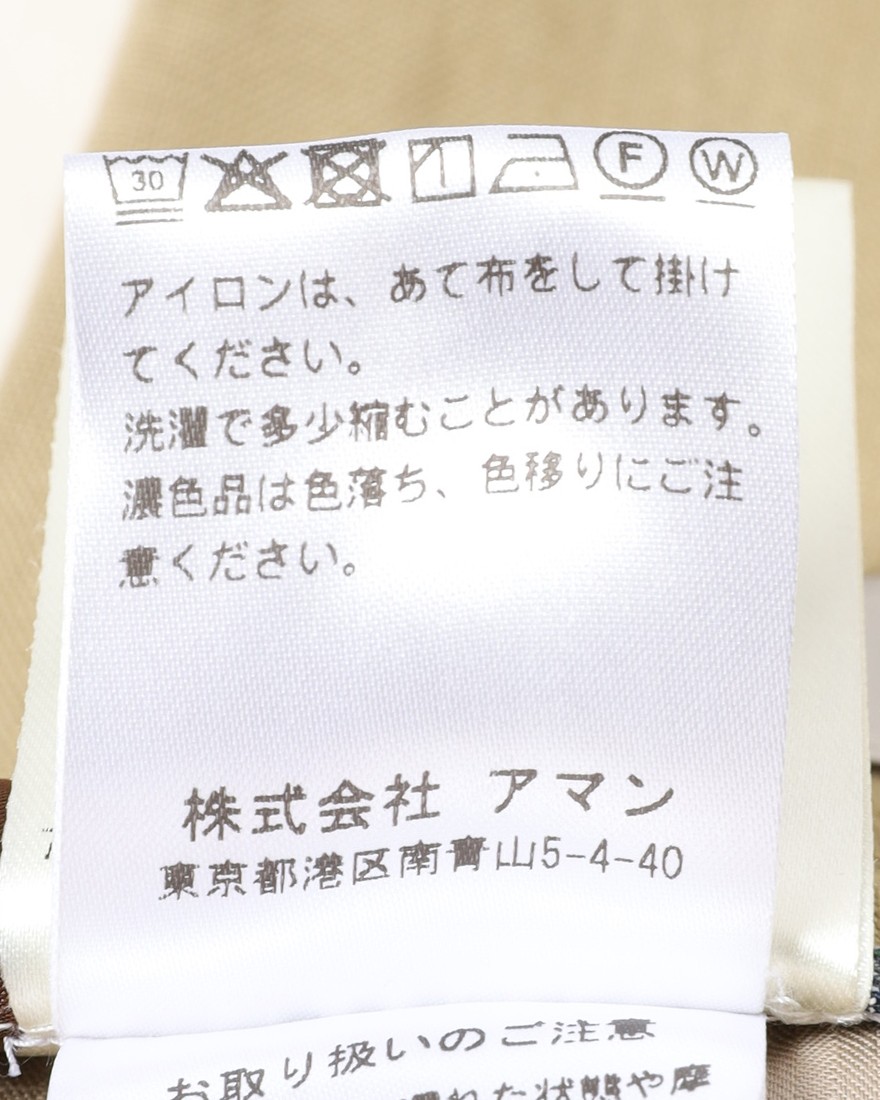 30 F W
アイロンは、あて布をして掛け
てください。
洗濯で多少縮むことがあります。
濃色品は色落ち、色移りにご注
意ください。
株式会社 アマン
東京都港区南青山5-4-40
お取り扱いのご注意
れた状態や摩